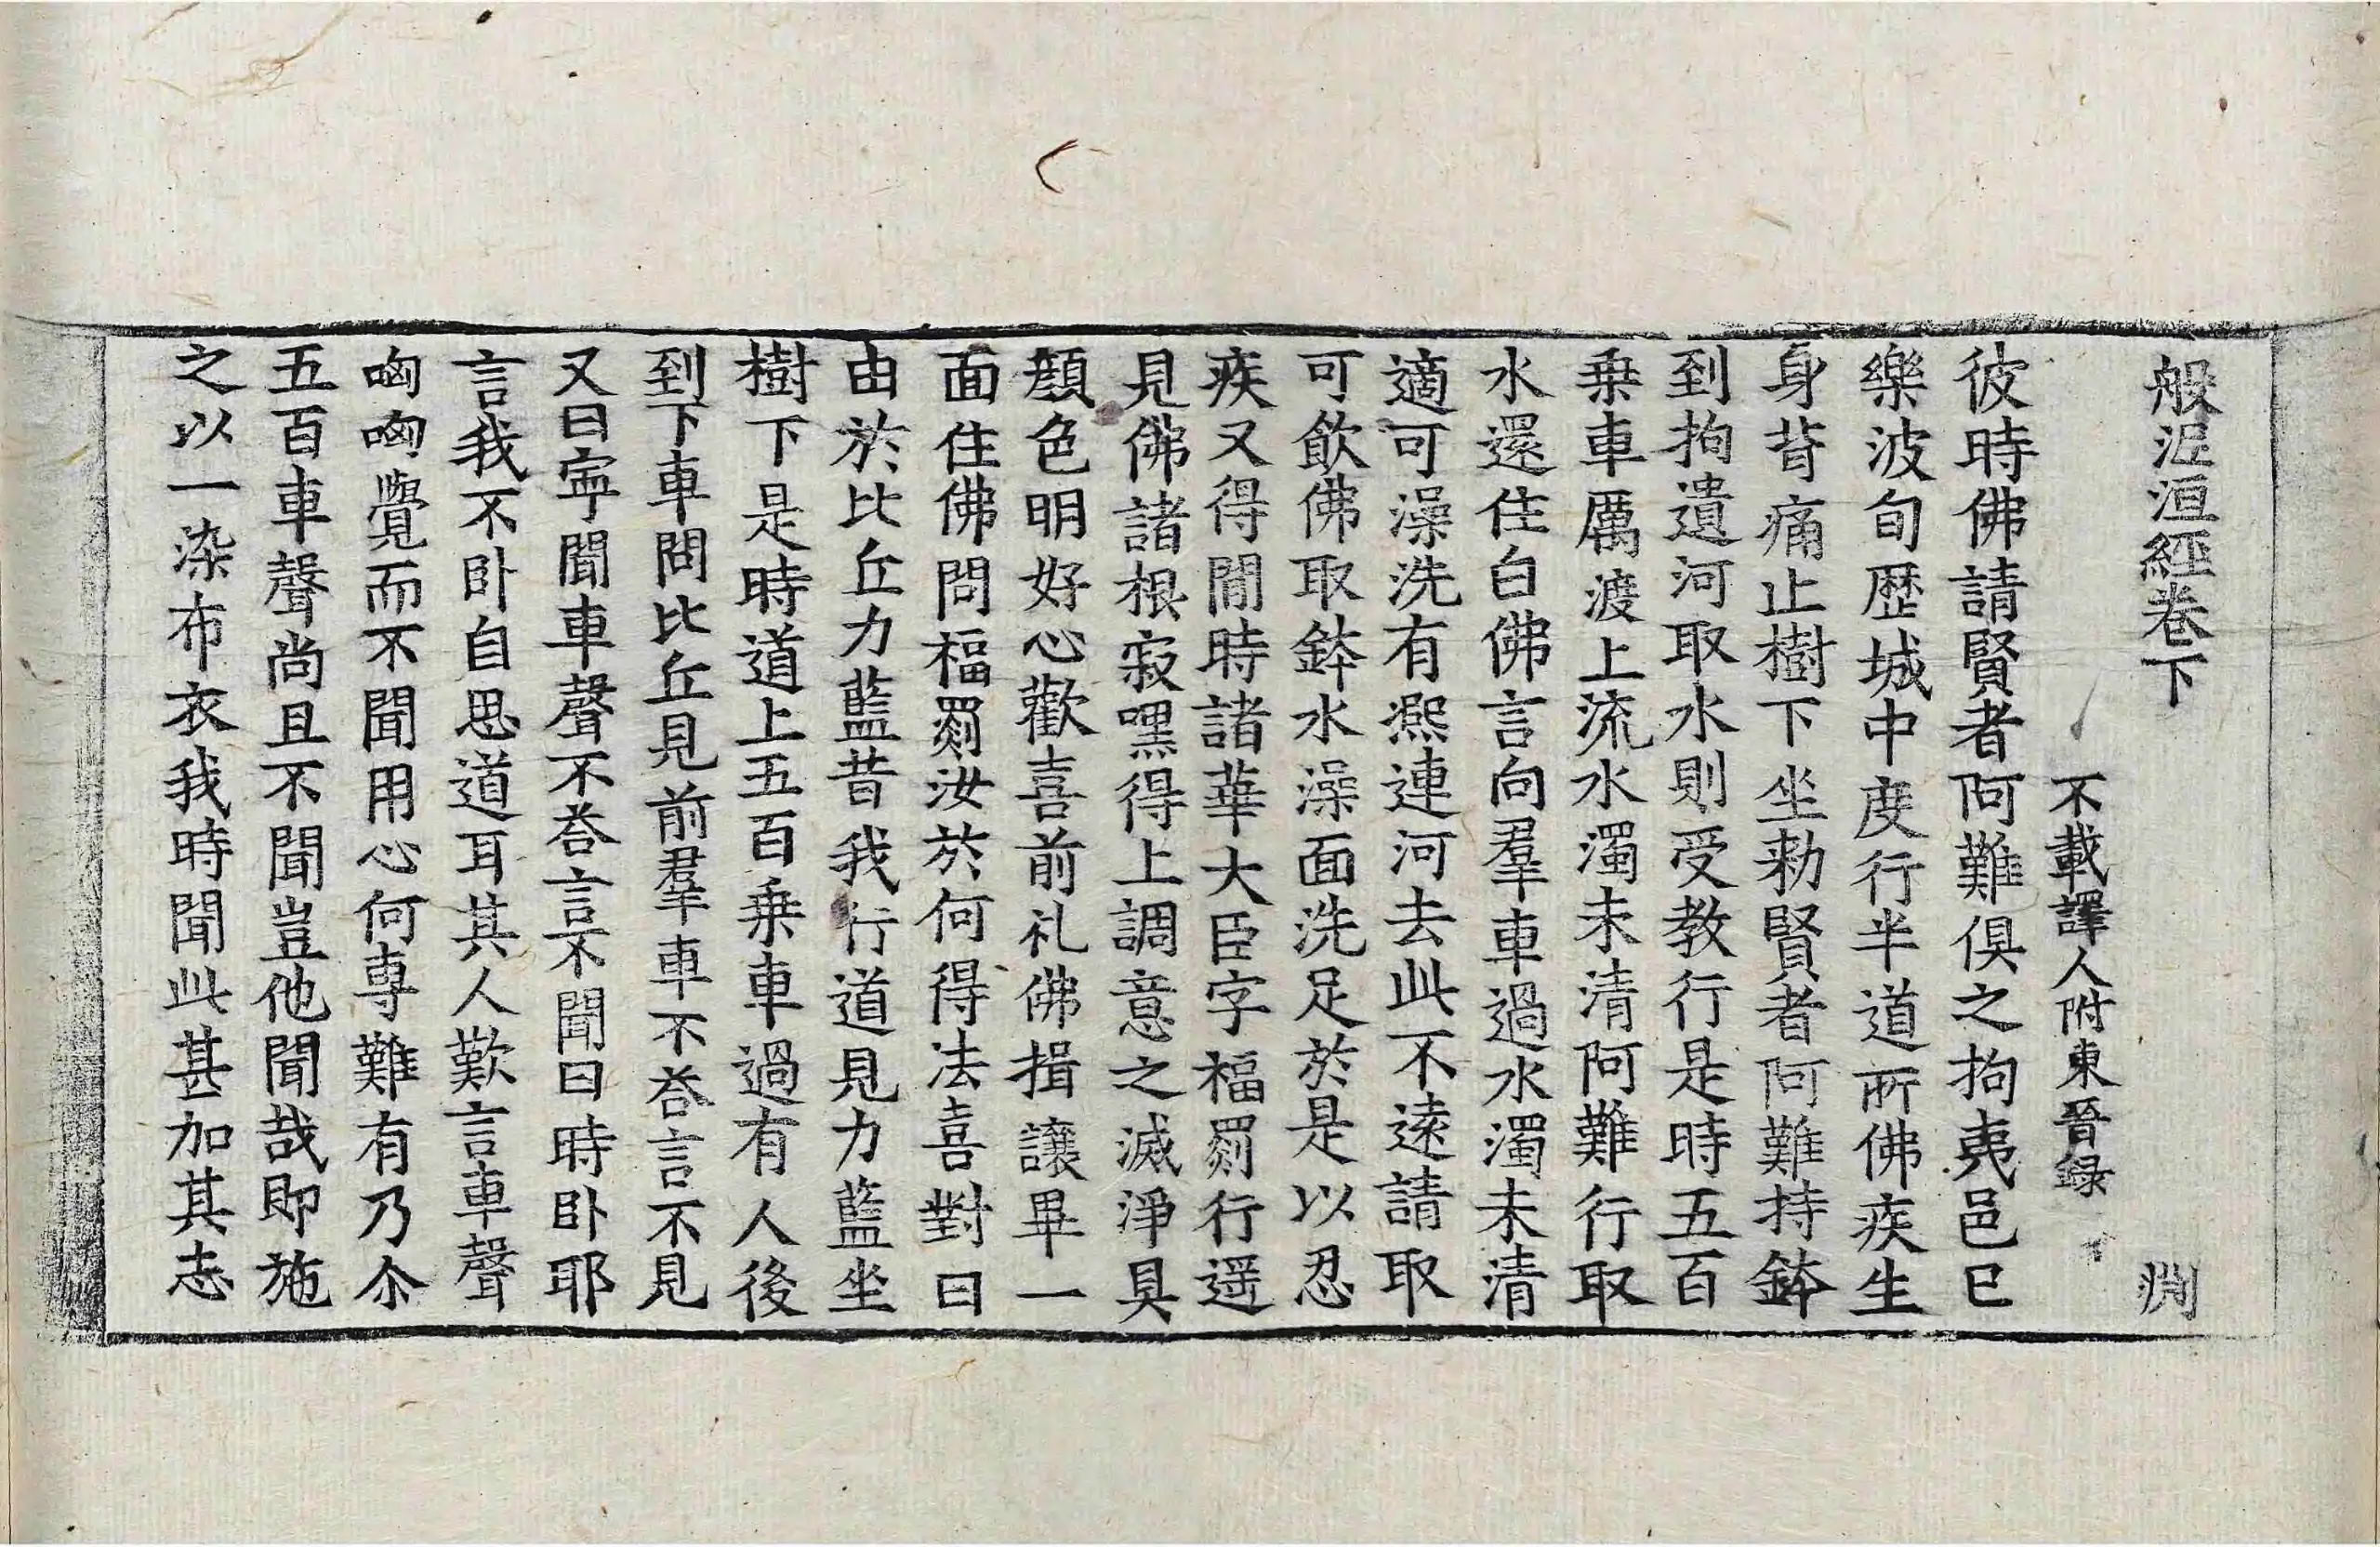 般泥洹經卷下 渕
不載譯人附東晉録
彼時佛請賢者阿難俱之拘夷邑已
樂波旬歴城中度行半道所佛疾生
身背痛止樹下坐勑賢者阿難持鉢
到拘遺河取水則受教行是時五百
乗車厲渡上流水濁未清阿難行取
水還住白佛言向羣車過水濁未清
適可澡洗有熈連河去此不逺請取
可飲佛取鉢水澡面洗足於是以忍
疾又得閒時諸華大臣字福罽行遥
見佛諸根寂嘿得上調意之滅淨具
顔色明好心歡喜前礼佛揖讓畢一
面住佛問福罽汝於何得法喜對曰
由於比丘力藍昔我行道見力藍坐
樹下是時道上五百乗車過有人後
到下車問比丘見前羣車不荅言不見
又曰寜聞車聲不荅言不聞曰時卧耶
言我不卧自思道耳其人歎言車聲
㕭㕭覺而不聞用心何専難有乃尒
五百車聲尚且不聞豈他聞哉即施
之以一染布衣我時聞此甚加其志